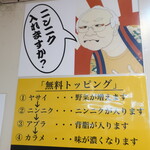 ニンニク
入れますか?
「無料トッピング」
①ヤサイ・・・野菜が増えます
②ニンニク・・・ニンニクが入ります
③アブラ・・・背脂が入ります
④カラメ・・・味が濃くなります